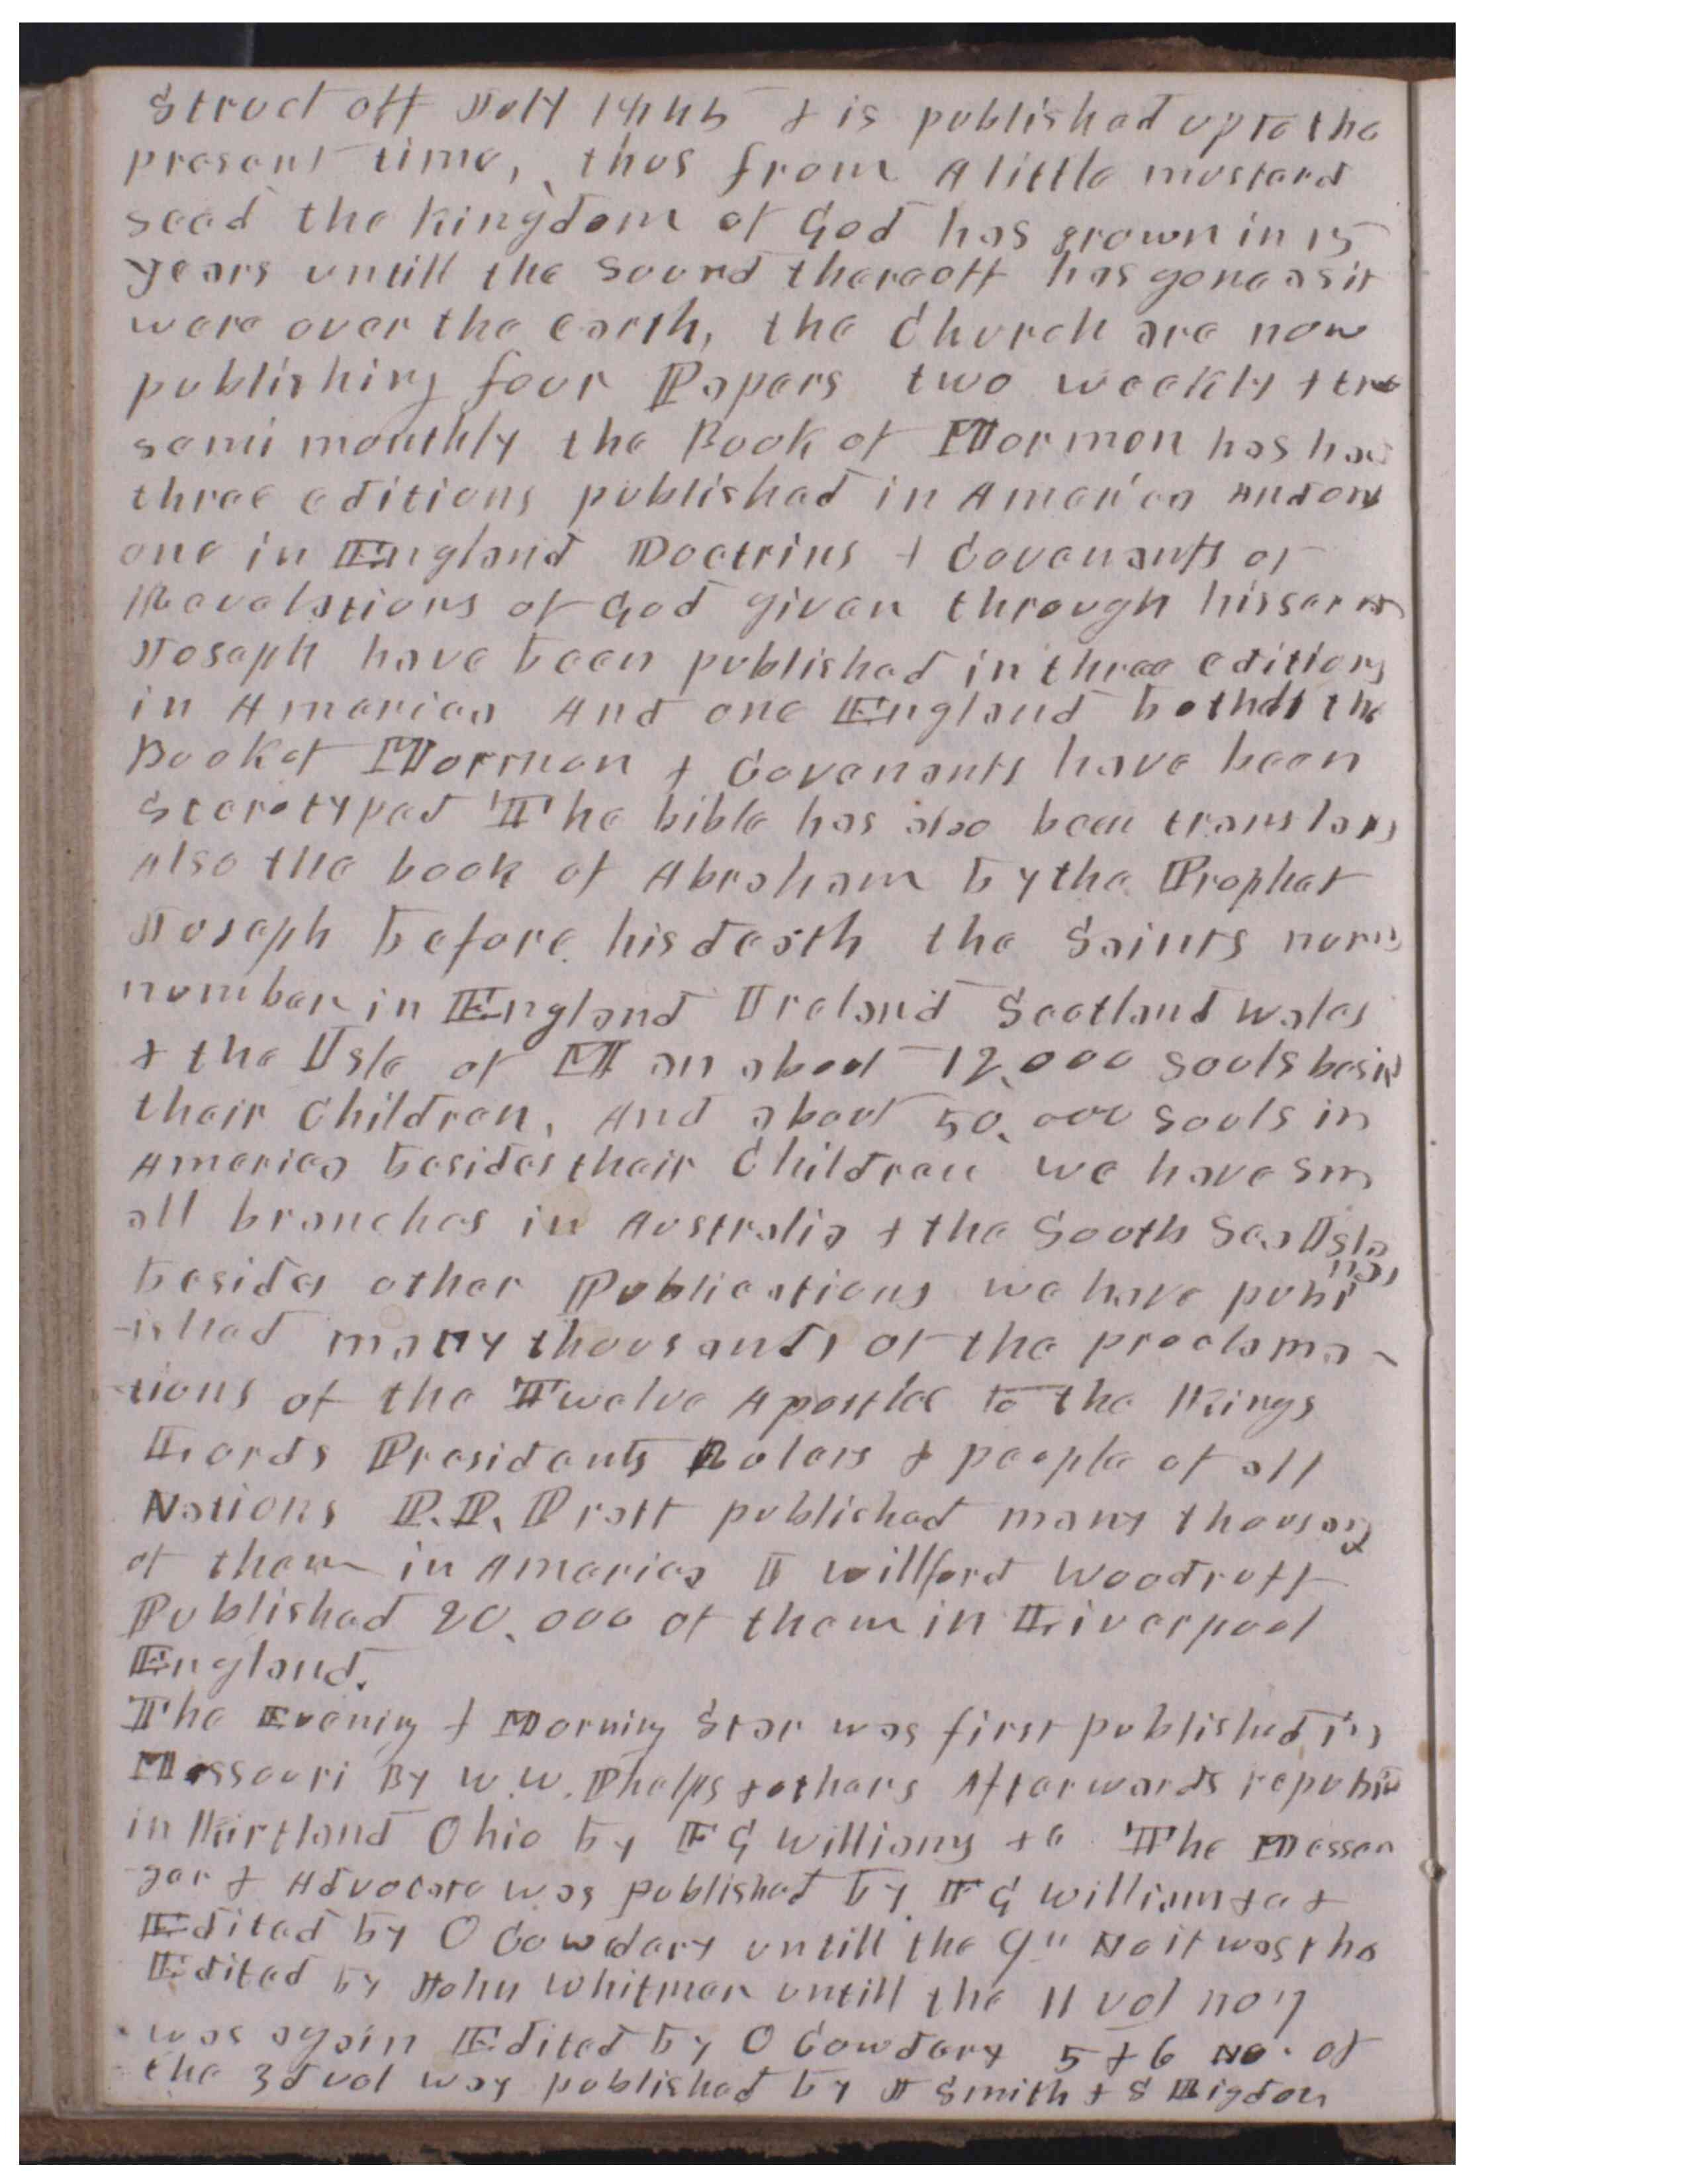 Struct off July 1845 & is published up to the
present time, thus from A little mustard
seed the kingdom of God has grown in 15
years untill the sound thereoff has gone as it
were over the earth, the Church are now
publishing four Papers two weekly & two
semi monthly the Book of Mormon has had
three editions published in America and on
one in England Doctrins & Covenants or
Revelations of God given through his
Joseph have been published in three editions
in America And one England both the
Book of Mormon & Covenants have been
Sterotyped The bible has also been
Also the book of Abraham by the Prophet
Joseph before his death the Saints
number in England Ireland Scotland Wales
& the Isle of Man about 12,000 souls
their Children, And about 50,000 souls in
America besides their Children we have sm
all branches in Australia & the South Sea Isla
nds
besides other Publications we have publ
-ished many thousands of the proclama-
-tions of the Twelve Apostles to the Kings
Lords Presidents Rulers & people of all
Nations P.P. Pratt published many
of them in America I Willford Woodruff
Published 20,000 of them in Liverpool
England.
The Evening & Morning Star was first published in
Missouri By W. W. Phelps & others Afterwards
in Kirtland Ohio by F G Williams & Co The Messen
ger & Advocate was published by F G Williams & Co &
Edited by O Cowdery untill the 9" No it was the
Edited by John Whitmer untill the II vol no
was again Edited by O Cowdery 5 & 6 No. of
the 3d vol way published by J Smith & S Rigdon